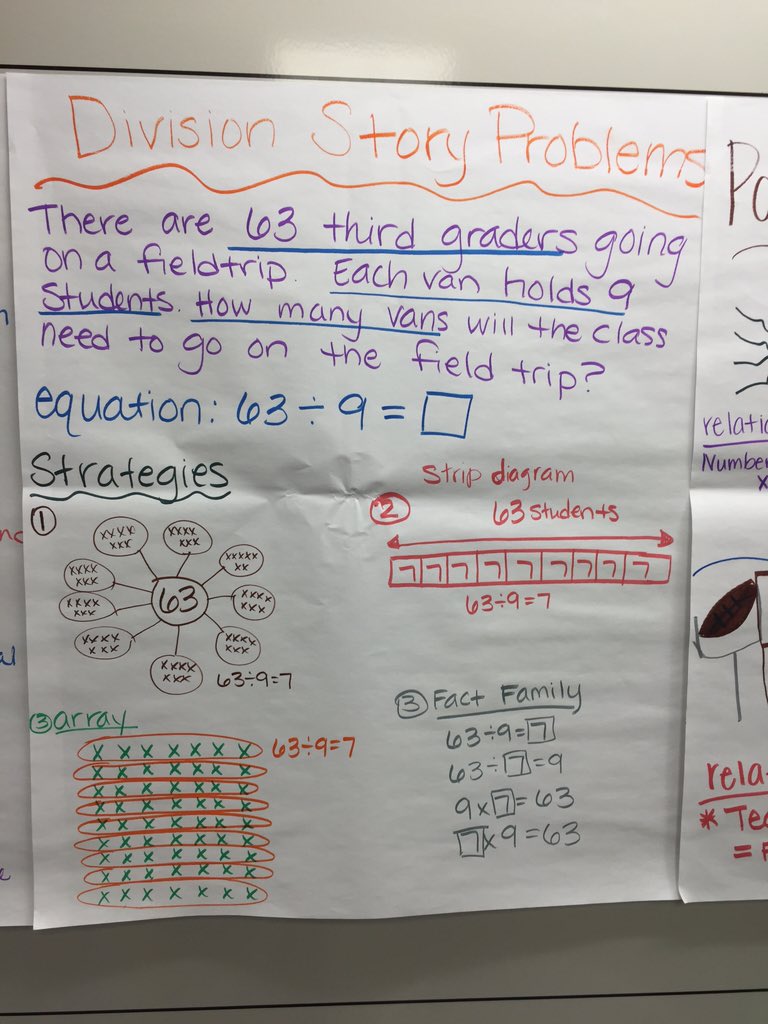 Division Story Problems
There are 63 third graders going
on a fieldtrip. Each van holds 9
Students. How many vans will the class
need to go on the field trip?
equation: 63 ÷ 9 = □
Strategies
①
xxxx xxx
xxxx xxx
xxxxx xx
xxxx xxx
xxxx xxx
xxxx xxx
xxxx xxx
xxxx xxx
xxxx xxx
63
63÷9=7
Strip diagram
② 63 students
7 7 7 7 7 7 7 7 7
63÷9=7
③ array
x x x x x x x 63÷9=7
x x x x x x x
x x x x x x x
x x x x x x x
x x x x x x x
x x x x x x x
x x x x x x x
x x x x x x x
x x x x x x x
③ Fact Family
63÷9=7
63÷7=9
9x7=63
7x9=63
Number
x
* 
=